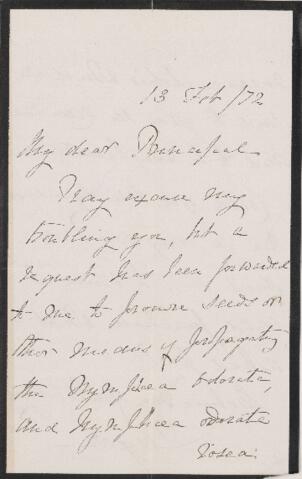 13 Feb /72
My dear Principal
Pray excuse my
troubling you, but a
request has been forwarded
to me to procure seeds or
other means of propagating
the Nymphea odorata,
and Nymphea odorata
rosea.